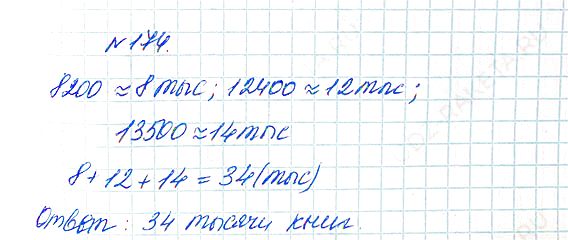 № 174.
8200 ≈ 8 тыс; 12400 ≈ 12 тыс;
13500 ≈ 14 тыс
8 + 12 + 14 = 34 (тыс)
Ответ: 34 тысячи книг.